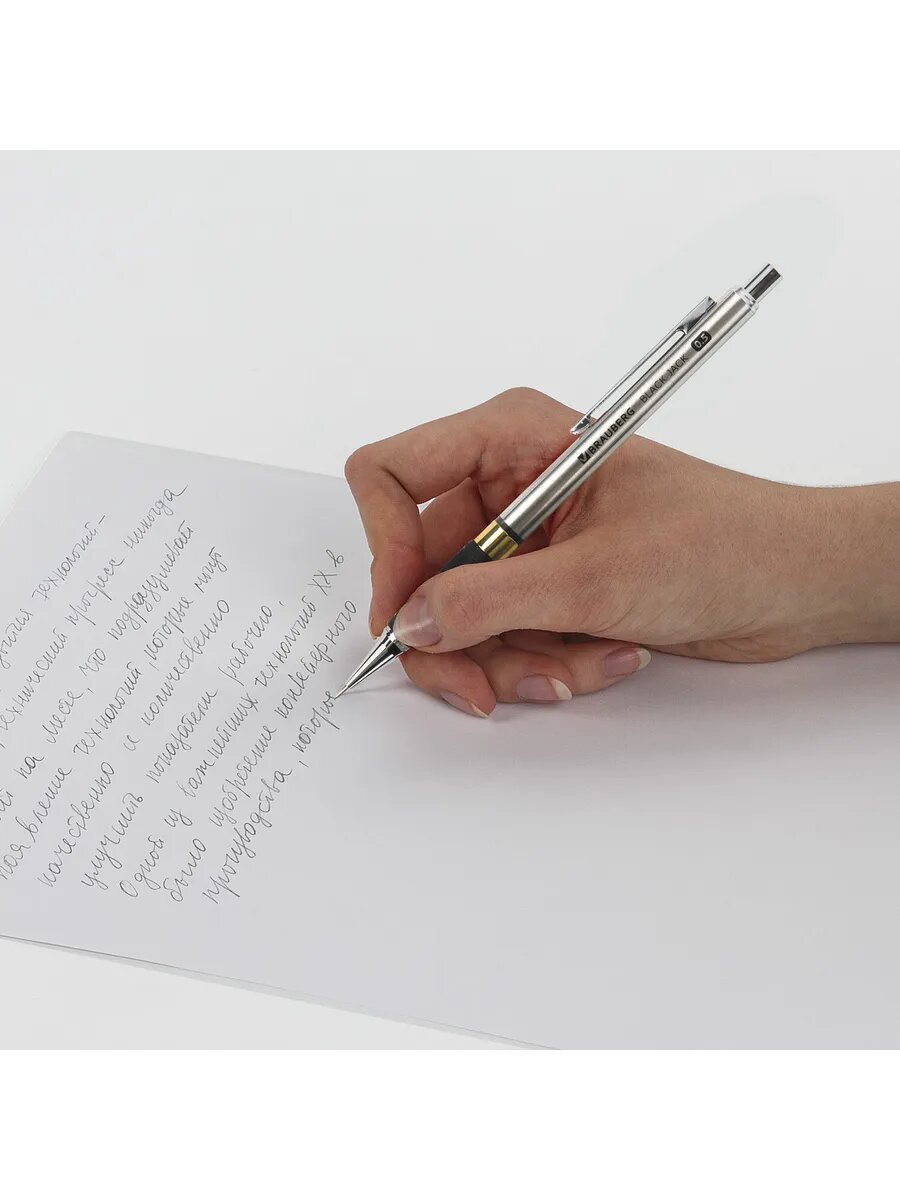 технологий-
технический прогресс никогда
на месте, что подразумевает
появление технологий, которые могут
качественно и количественно
улучшить показатели рабочего.
Одной из важнейших технологий XX в
было изобретение конвейерного
производства, которое
BRAUBERG BLACK JACK 0.5